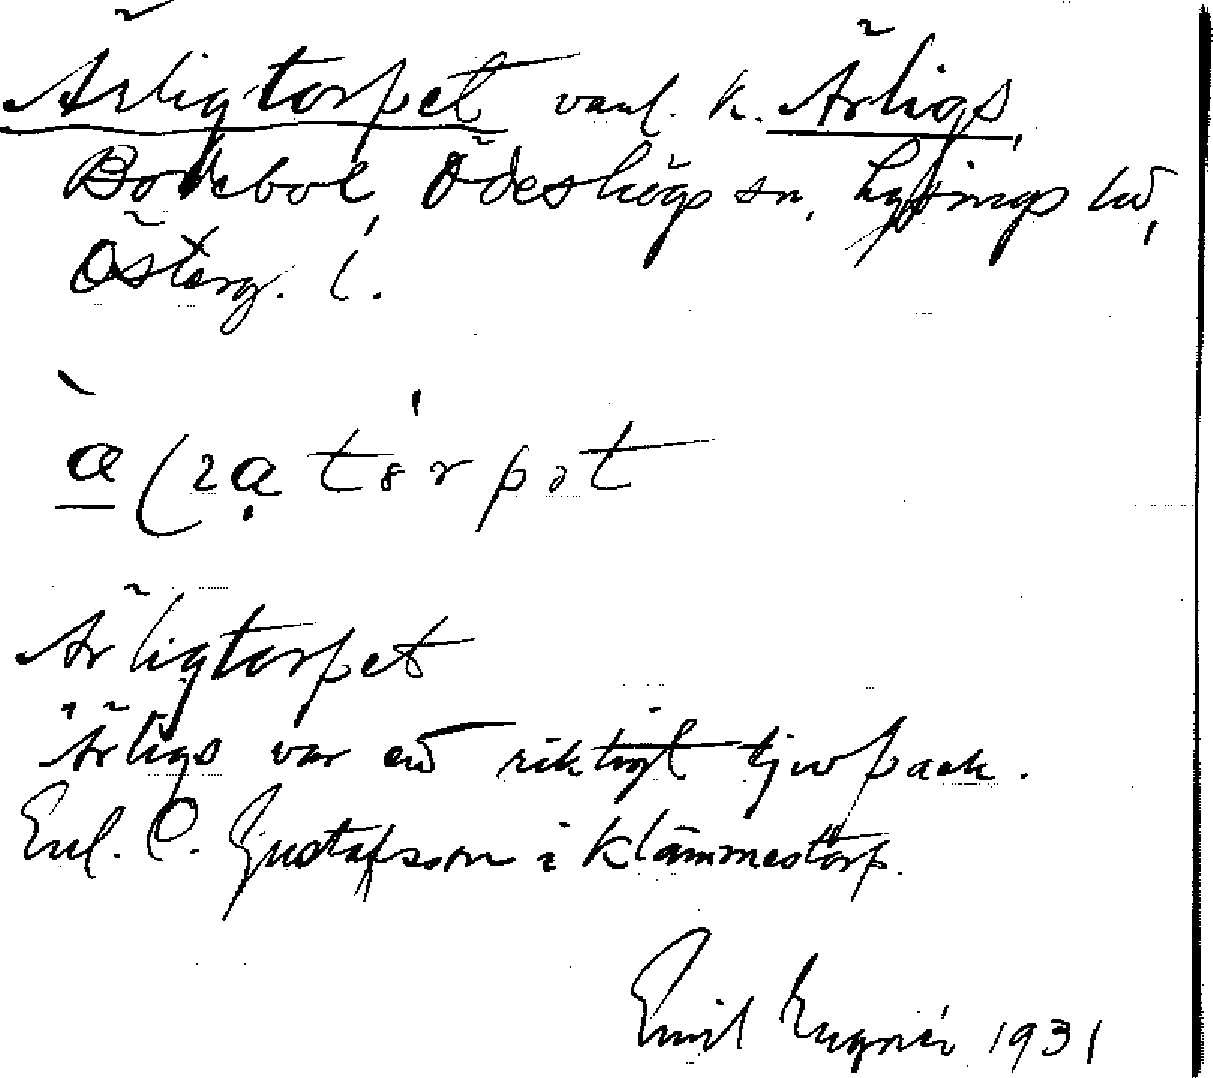 Ärligtorpet vanl. k. Ärligs,
Bockebol, Ödeshögs sn, Lysings hd,
Österg. l.
Ärligtorpet
Ärligs var ett riktigt tjuvpack.
Enl. C. Gustafsson i Klämmestorp.
Emil 1931